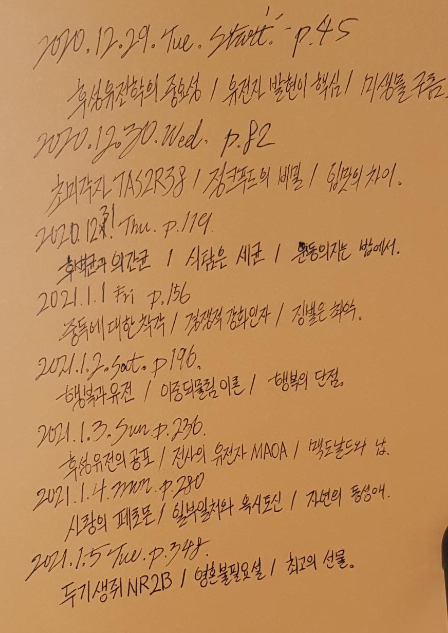 2020.12.29.Tue. Start! -p.45
후성유전학의 중요성 / 유전자 발현이 핵심 / 미생물 구름
2020.12.30.Wed. p.82
초미각자 TAS2R38 / 정크푸드의 비밀 / 입맛의 차이.
2020.12.31. Thu. p.119.
후벽균과 의간균 / 식탐은 세균 / 운동의지는 밥에서.
2021.1.1 Fri p.156
중독에 대한 착각 / 경쟁적 강화인자 / 징벌은 최악.
2021.1.2. Sat. p196.
행복과 유전 / 이중되물림 이론 / 행복의 단점.
2021.1.3. Sun. p.236.
후성유전의 공포 / 전사의 유전자 MAOA / 맥도날드와 납.
2021.1.4. mon. p.280
사랑의 페로몬 / 일부일처와 옥시토신 / 자연의 동성애.
2021.1.5 Tue. p.348.
두기 생쥐 NR2B / 영혼불필요설 / 최고의 선물.